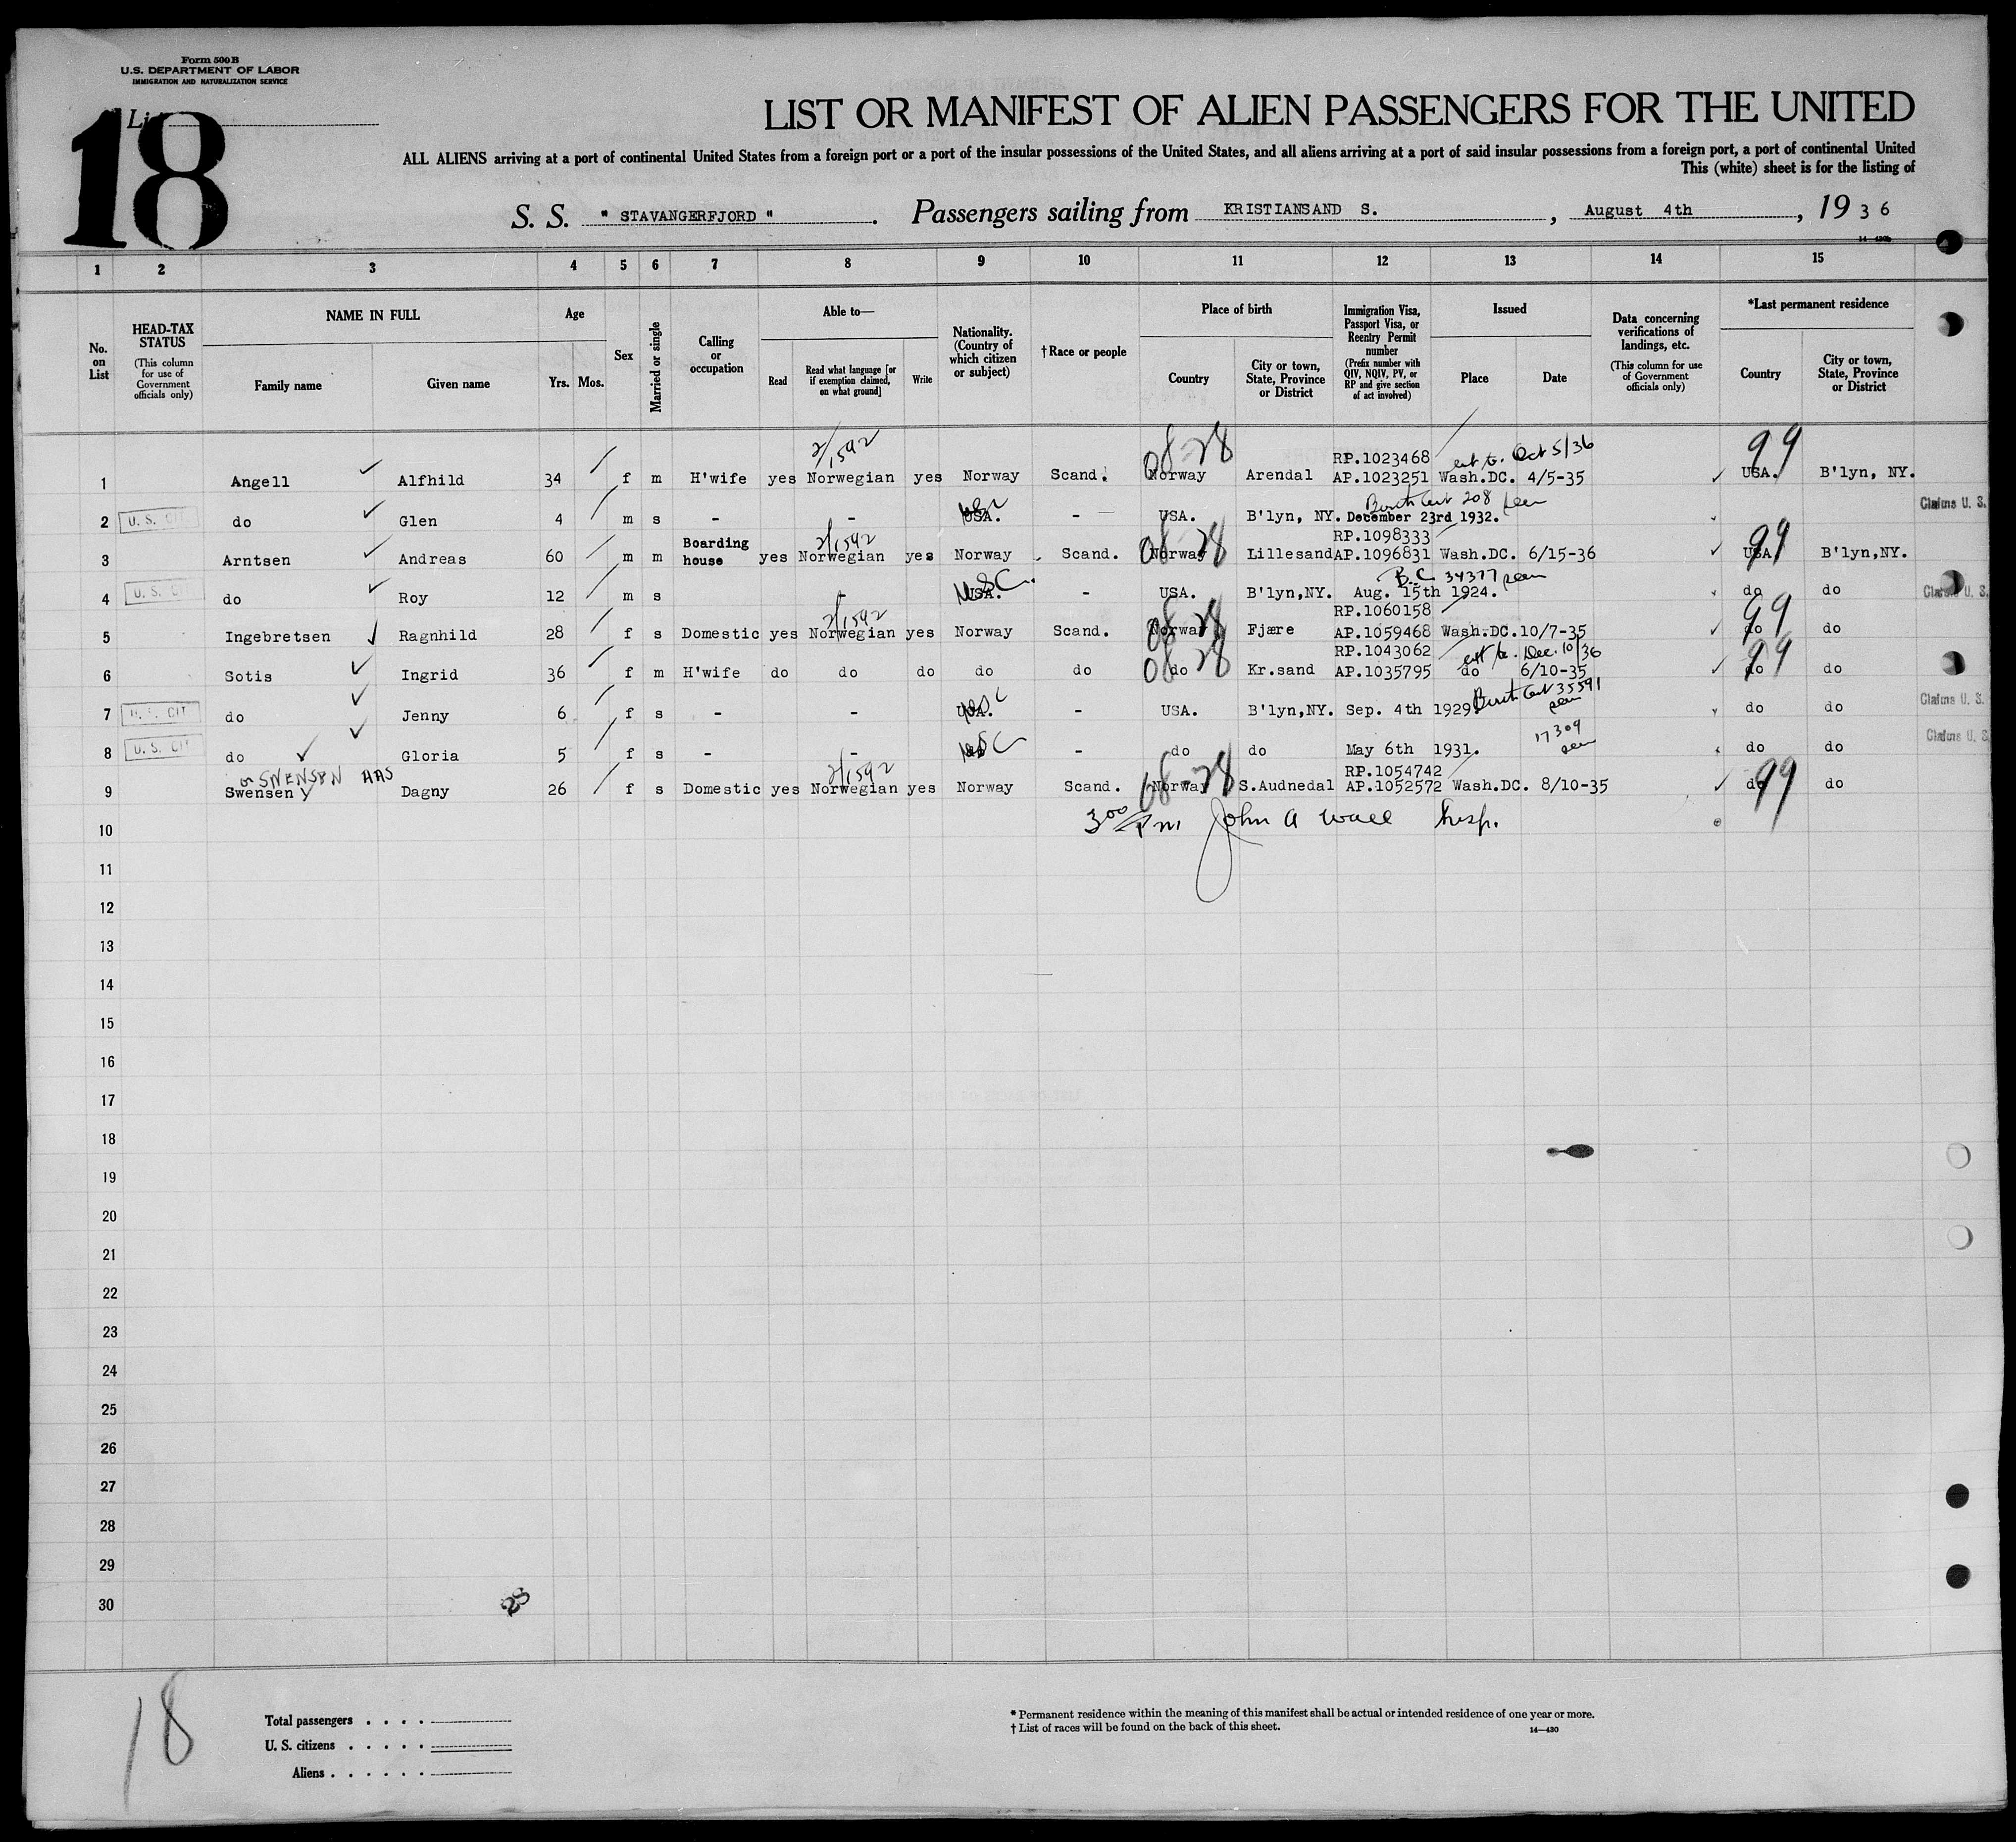 Form 500 B
U. S. DEPARTMENT OF LABOR
IMMIGRATION AND NATURALIZATION SERVICE
18
LIST OR MANIFEST OF ALIEN PASSENGERS FOR THE UNITED
ALL ALIENS arriving at a port of continental United States from a foreign port or a port of the insular possessions of the United States, and all aliens arriving at a port of said insular possessions from a foreign port, a port of continental United
This (white) sheet is for the listing of
S. S. " STAVANGERFJORD " . Passengers sailing from KRISTIANSAND S. , August 4th , 19 3 6
1 2 3 4 5 6 7 8 9 10 11 12 13 14 15
No. on List
HEAD-TAX STATUS (This column for use of Government officials only)
NAME IN FULL Family name Given name
Age Yrs. Mos.
Sex
Married or single
Calling or occupation
Able to— Read Read what language [or if exemption claimed, on what ground] Write
Nationality. (Country of which citizen or subject)
†Race or people
Place of birth Country City or town, State, Province or District
Immigration Visa, Passport Visa, or Reentry Permit number (Prefix number with QIV, NQIV, PV, or RP and give section of act involved)
Issued Place Date
Data concerning verifications of landings, etc. (This column for use of Government officials only)
*Last permanent residence Country City or town, State, Province or District
2/1592 08-28 RP.1023468 ext to. Oct 5/36 99
1 Angell ✓ Alfhild 34 f m H'wife yes Norwegian yes Norway Scand. Norway Arendal AP.1023251 Wash.DC. 4/5-35 ✓ USA. B'lyn, NY.
Birth Cert 208 seen
2 U. S. CIT do ✓ Glen 4 m s - - USA. - USA. B'lyn, NY. December 23rd 1932. Claims U. S.
Boarding 2/1592 08 28 RP.1098333 99
3 Arntsen ✓ Andreas 60 m m house yes Norwegian yes Norway Scand. Norway Lillesand AP.1096831 Wash.DC. 6/15-36 ✓ USA B'lyn,NY.
USC. B.C. 34377 seen
4 U. S. C do ✓ Roy 12 m s - USA. - USA. B'lyn,NY. Aug. 15th 1924. do do Claims U. S.
2/1592 08 28 RP.1060158 99
5 Ingebretsen ✓ Ragnhild 28 f s Domestic yes Norwegian yes Norway Scand. Norway Fjære AP.1059468 Wash.DC.10/7-35 ✓ do do
08 28 RP.1043062 ext to. Dec. 10/36 99
6 Sotis ✓ Ingrid 36 f m H'wife do do do do do do Kr.sand AP.1035795 do 6/10-35 ✓ do do
USC Birth Cert 35591 seen
7 U. S. CIT do ✓ Jenny 6 f s - - USA. - USA. B'lyn,NY. Sep. 4th 1929. do do Claims U. S.
USC 17309 seen
8 U. S. CIT do ✓ Gloria 5 f s - - do - do do May 6th 1931. do do Claims U. S.
or SWENSEN AAS 2/1592 08-28 RP.1054742 99
9 Swensen Dagny 26 f s Domestic yes Norwegian yes Norway Scand. Norway S.Audnedal AP.1052572 Wash.DC. 8/10-35 ✓ do do
10 3 00 Pm John A Wall Insp.
11
12
13
14
15
16
17
18
19
20
21
22
23
24
25
26
27
28
29
30
18
Total passengers . . . .
U. S. citizens . . . . .
Aliens . . . . . .
* Permanent residence within the meaning of this manifest shall be actual or intended residence of one year or more.
† List of races will be found on the back of this sheet. 14—430